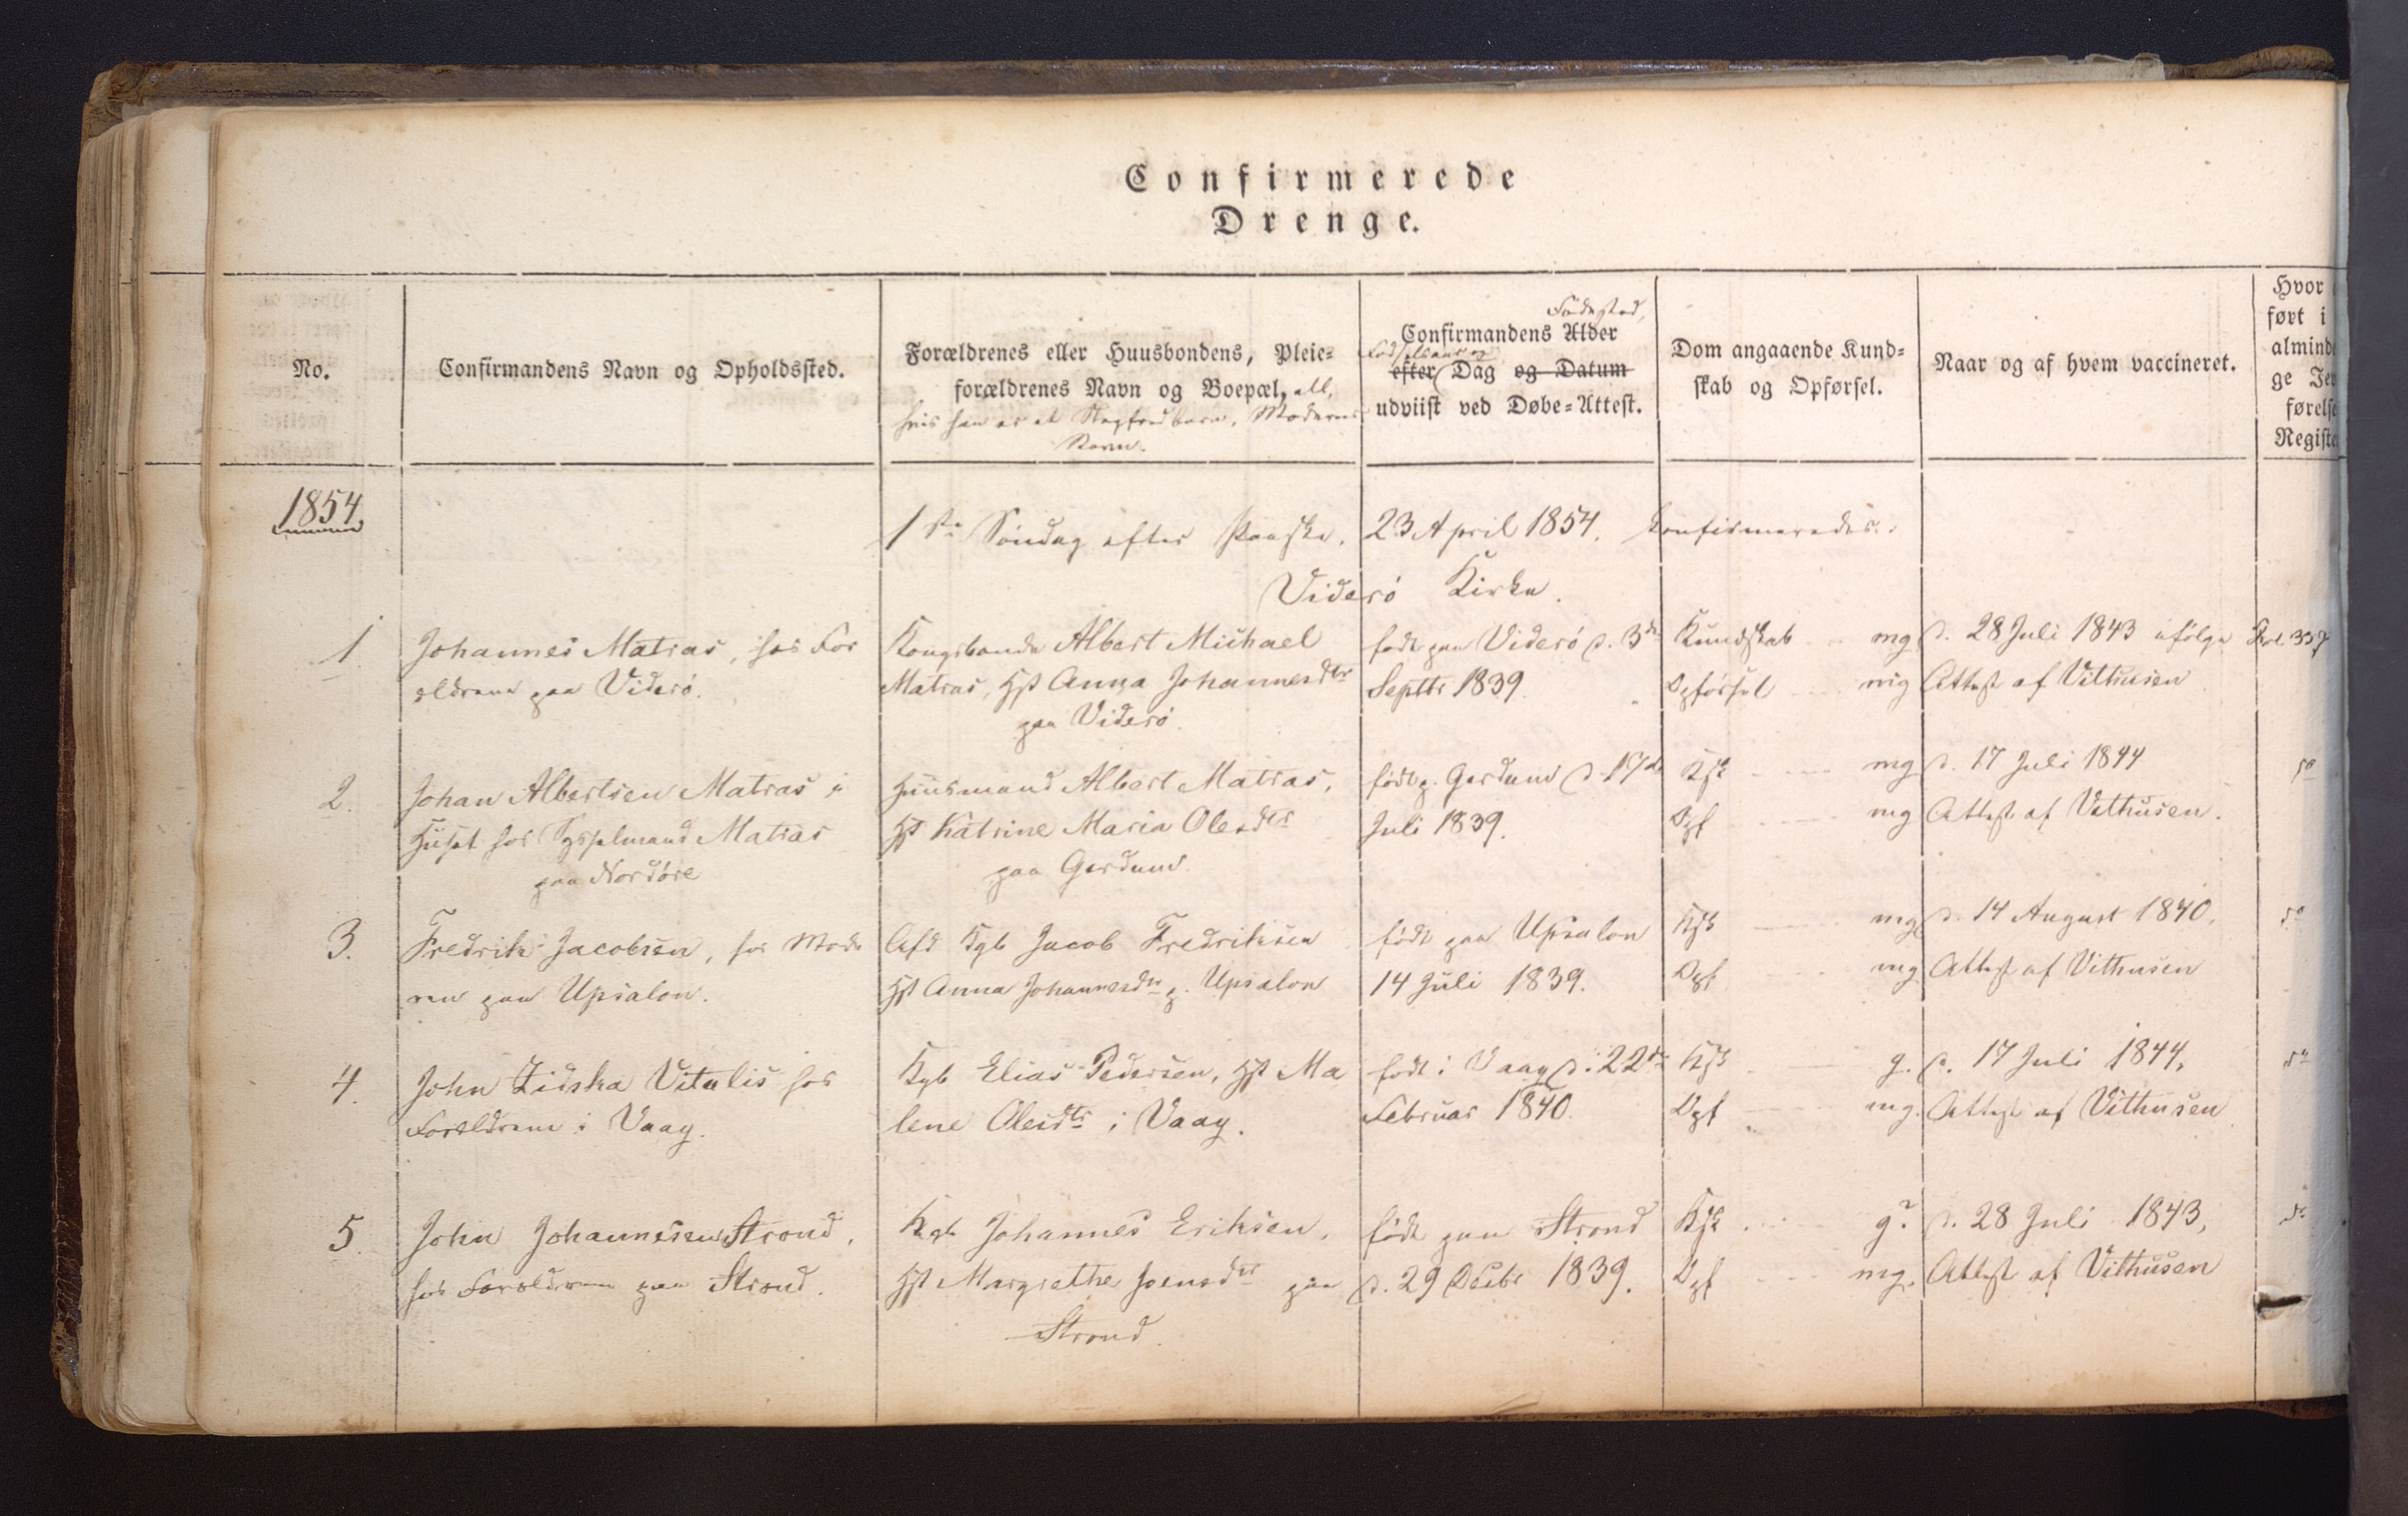 Confirmerede
Drenge.
No.
Confirmandens Navn og Opholdssted.
Forældrenes eller Huusbondens, Pleie-
forældrenes Navn og Boepæl, ell,
hvis han er et Slegfredbarn, Moderens
Navn.
Fødested,
Confirmandens Alder
Fødselsaar og
efter Dag og Datum
udviist ved Døbe-Attest.
Dom angaaende Kund-
skab og Opførsel.
Naar og af hvem vaccineret.
Hvor
ført i
almind
ge Je
førelse
Registe
1854
1ste Søndag efter Paaske, 23 April 1854. konfirmeredes:
Viderø Kirke.
1
Johannes Matras, hos For
ældrene paa Viderø.
Kongsbonde Albert Michael
Matras, Hst Anna Johannesdtr
paa Viderø.
født paa Viderø d. 3de
Septbr 1839.
Kundskab mg
Opførsel mg
d. 28 Juli 1843 ifølge
Attest af Vithusen
2.
Johan Albertsen Matras i
Huset hos Sysselmand Matras
paa Nordøre
Huusmand Albert Matras,
Hst Katrine Maria Olesdtr
paa Gerdum
født p. Gerdum d. 17de
Juli 1839.
Ksk mg
Opf mg
d. 17 Juli 1844
Attest af Vithusen.
do
3.
Fredrik Jacobsen, hos Mode
ren paa Upsalon.
Afd Kgb Jacob Fredriksen
Hst Anna Johannesdtr p. Upsalon
født paa Upsalon
14 Juli 1839.
Ksk mg
Opf mg
d. 14 August 1840.
Attest af Vithusen
do
4.
John Zidska Vitalis hos
Forældrene i Vaag.
Kgb Elias Pedersen, Hst Ma
lene Olesdtr i Vaag.
født i Vaag d. 22de
Februar 1840.
Ksk g.
Opf mg.
d. 17 Juli 1844,
Attest af Vithusen
do
5.
John Johannesen Strond,
hos Forældrene paa Strond.
Kgb Johannes Eriksen,
Hst Margrethe Joensdtr paa
Strond.
født paa Strond
d. 29 Decbr 1839.
Ksk g?
Opf mg.
d. 28 Juli 1843,
Attest af Vithusen
do